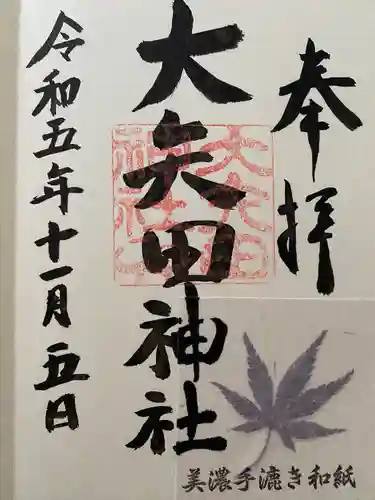 奉拝
大矢田神社
令和五年十一月五日
大矢田神社
美濃手漉き和紙